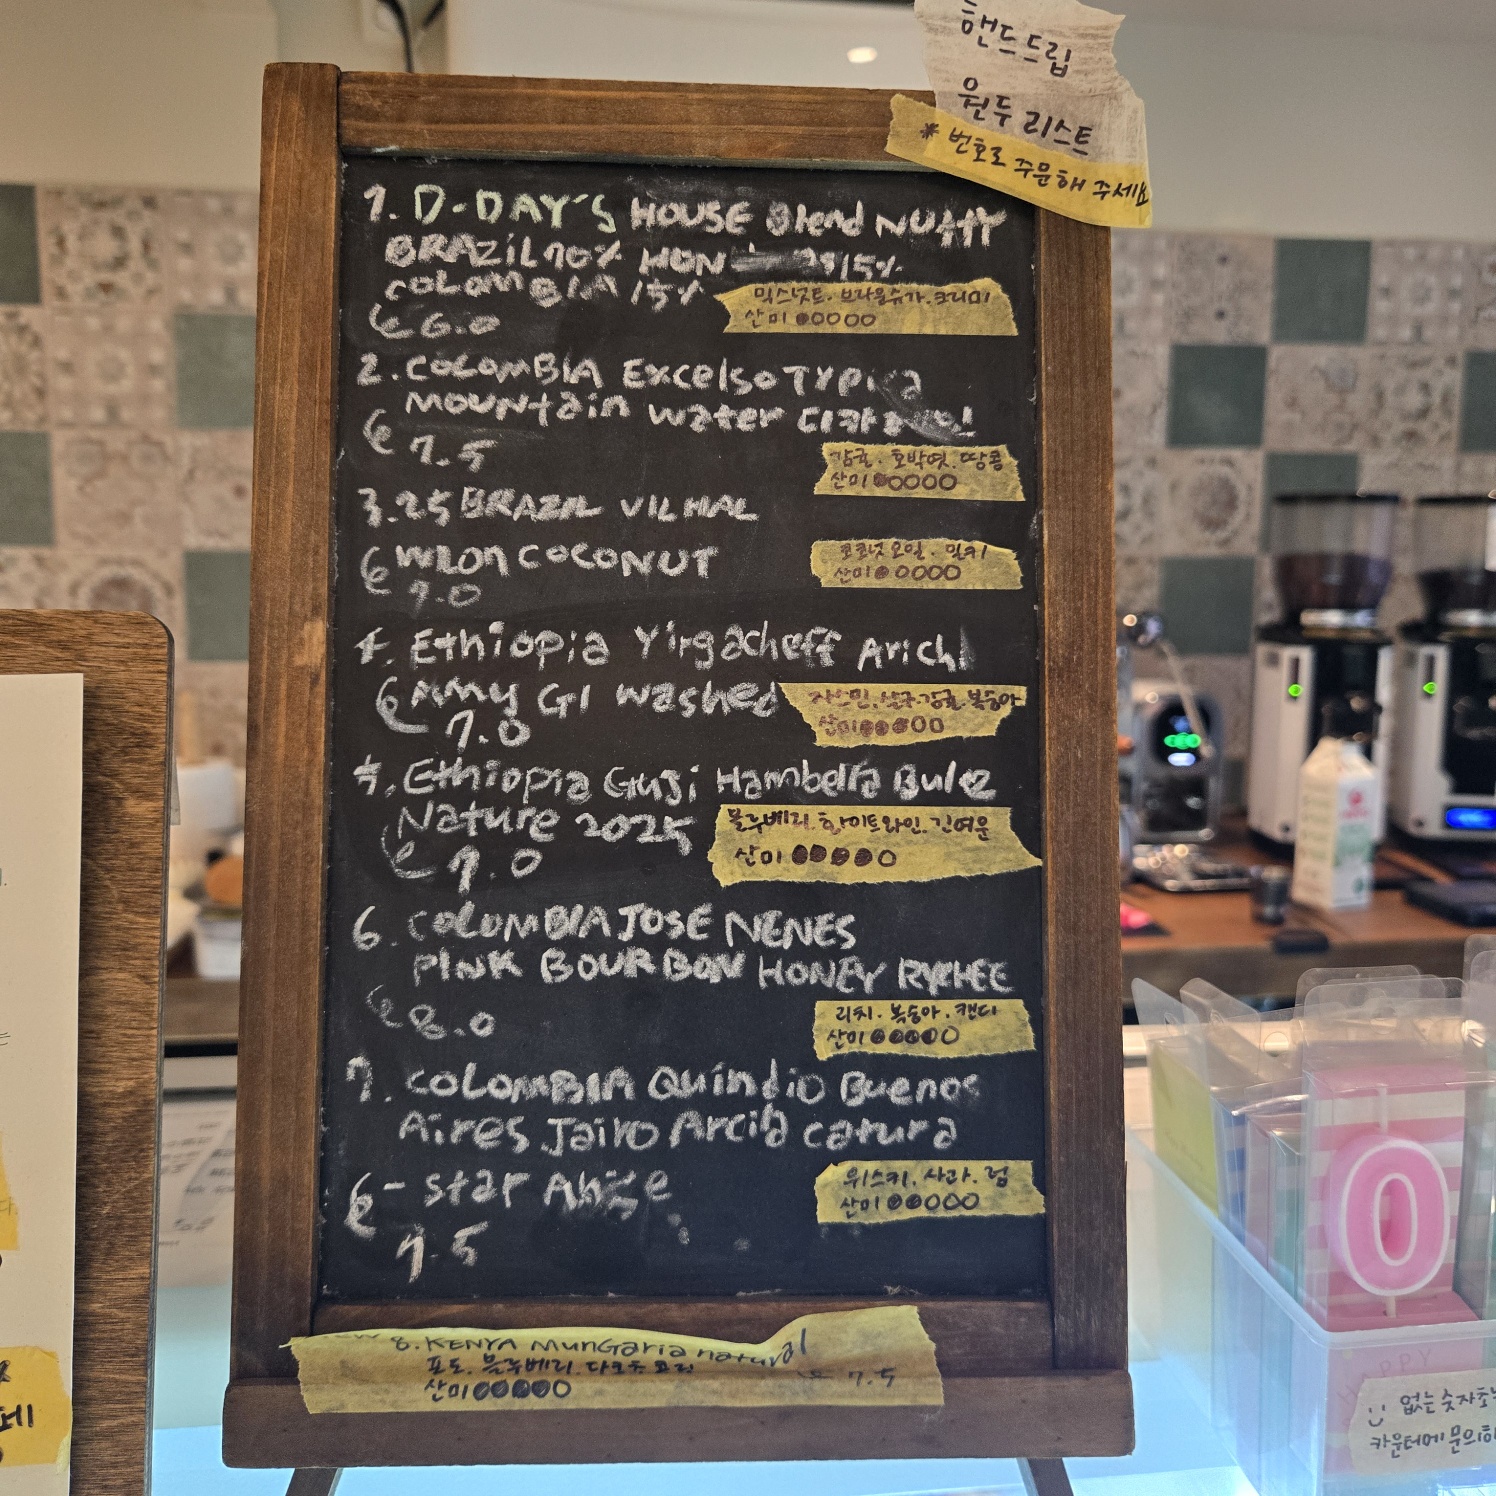 핸드드립
원두 리스트
* 번호로 주문해 주세요
1. D-DAY'S HOUSE Blend NUTTY
BRAZIL 70% HON 15%
COLOMBIA 15%
믹스넛트. 브라운슈가. 크리미
산미 ●○○○○
6.0
2. COLOMBIA Excelso Typica
Mountain water 디카페인
7.5
감귤. 호박엿. 땅콩
산미 ●○○○○
3. 25 BRAZIL VILHAL
WLON COCONUT
코코넛오일. 밀키
산미 ●○○○○
7.0
4. Ethiopia Yirgacheff Arichi
Amy G1 washed
자스민. 살구. 감귤. 복숭아
산미 ●●●○○
7.0
5. Ethiopia Guji Hambella Bulez
Nature 2025
블루베리. 화이트와인. 긴여운
산미 ●●●●○
7.0
6. COLOMBIA JOSE NENES
PINK BOURBON HONEY RYCHEE
8.0
리치. 복숭아. 캔디
산미 ●●●●○
7. COLOMBIA Quindio Buenos
Aires Jairo Arcila catura
- star
위스키. 사과. 럼
산미 ●●○○○
7.5
8. KENYA MunGaria natural
포도. 블루베리. 다크초콜릿
7.5
산미 ●●●●○
0
없는 숫자초는
카운터에 문의하